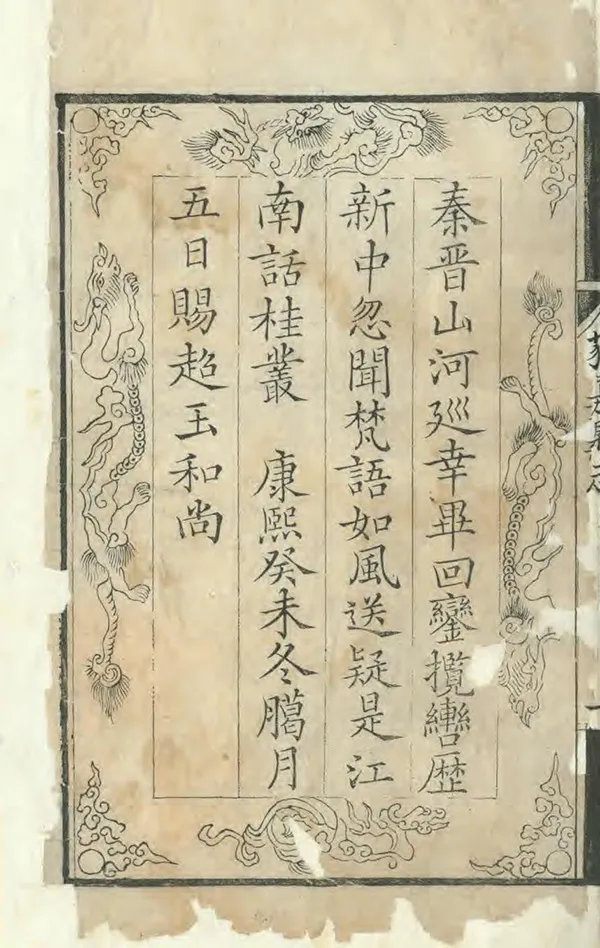 秦晋山河廵幸畢回鑾攬轡歴
新中忽聞梵語如風送疑是江
南話桂叢 康熙癸未冬臈月
五日賜超玉和尚